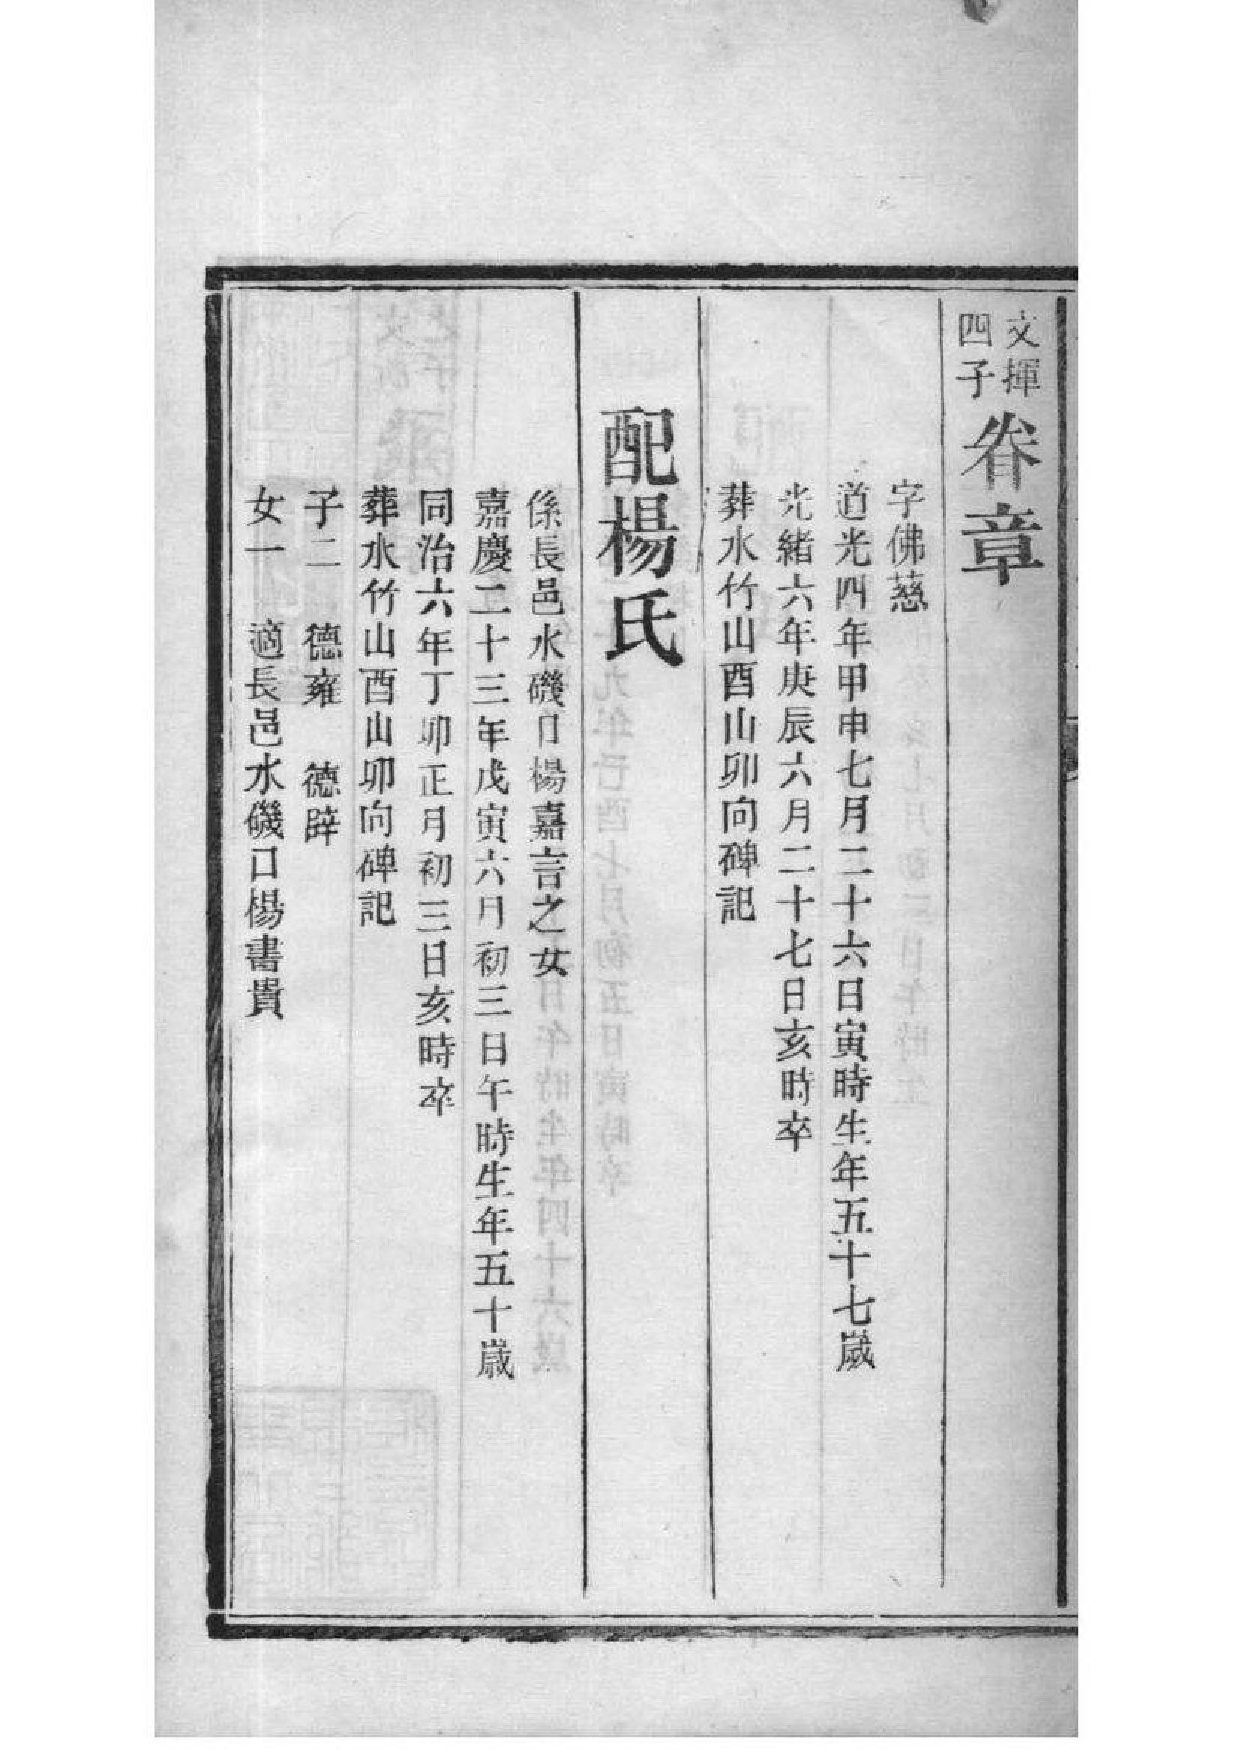 文揮
四子
眷章
字佛慈
道光四年甲申七月二十六日寅時生年五十七歲
光緒六年庚辰六月二十七日亥時卒
葬水竹山酉山卯向碑記
配楊氏
係長邑水磯口楊嘉言之女
嘉慶二十三年戊寅六月初三日午時生年五十歲
同治六年丁卯正月初三日亥時卒
葬水竹山酉山卯向碑記
子二　德雍　德辟
女一　適長邑水磯口楊書貴